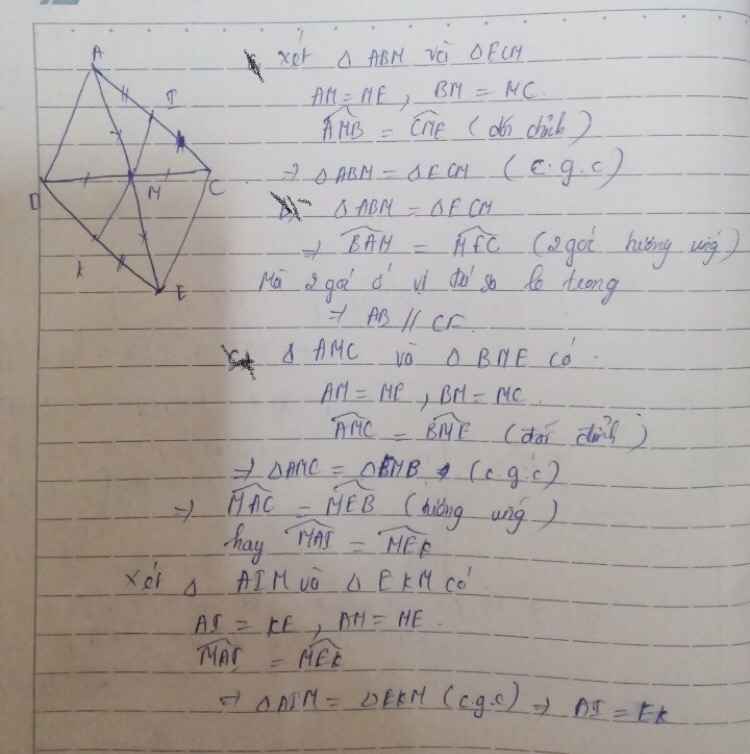 A
I
D
M
C
K
E
xét Δ ABM và Δ ECM
AM = ME , BM = MC.
AMB = CME (đối đỉnh)
⇒ Δ ABM = Δ ECM (c.g.c)
Δ ABM = Δ ECM
⇒ BAM = MEC (2 góc tương ứng)
Mà 2 góc ở vị trí so le trong
⇒ AB // CE.
Δ AMC và Δ BME có
AM = ME , BM = MC.
AMC = BME (đối đỉnh)
⇒ Δ AMC = Δ EMB (c.g.c)
⇒ MAC = MEB (tương ứng)
hay MAI = MEK
Xét Δ AIM và Δ EKM có
AI = KE , AM = ME.
MAI = MEK
⇒ Δ AIM = Δ EKM (c.g.c) ⇒ AI = EK